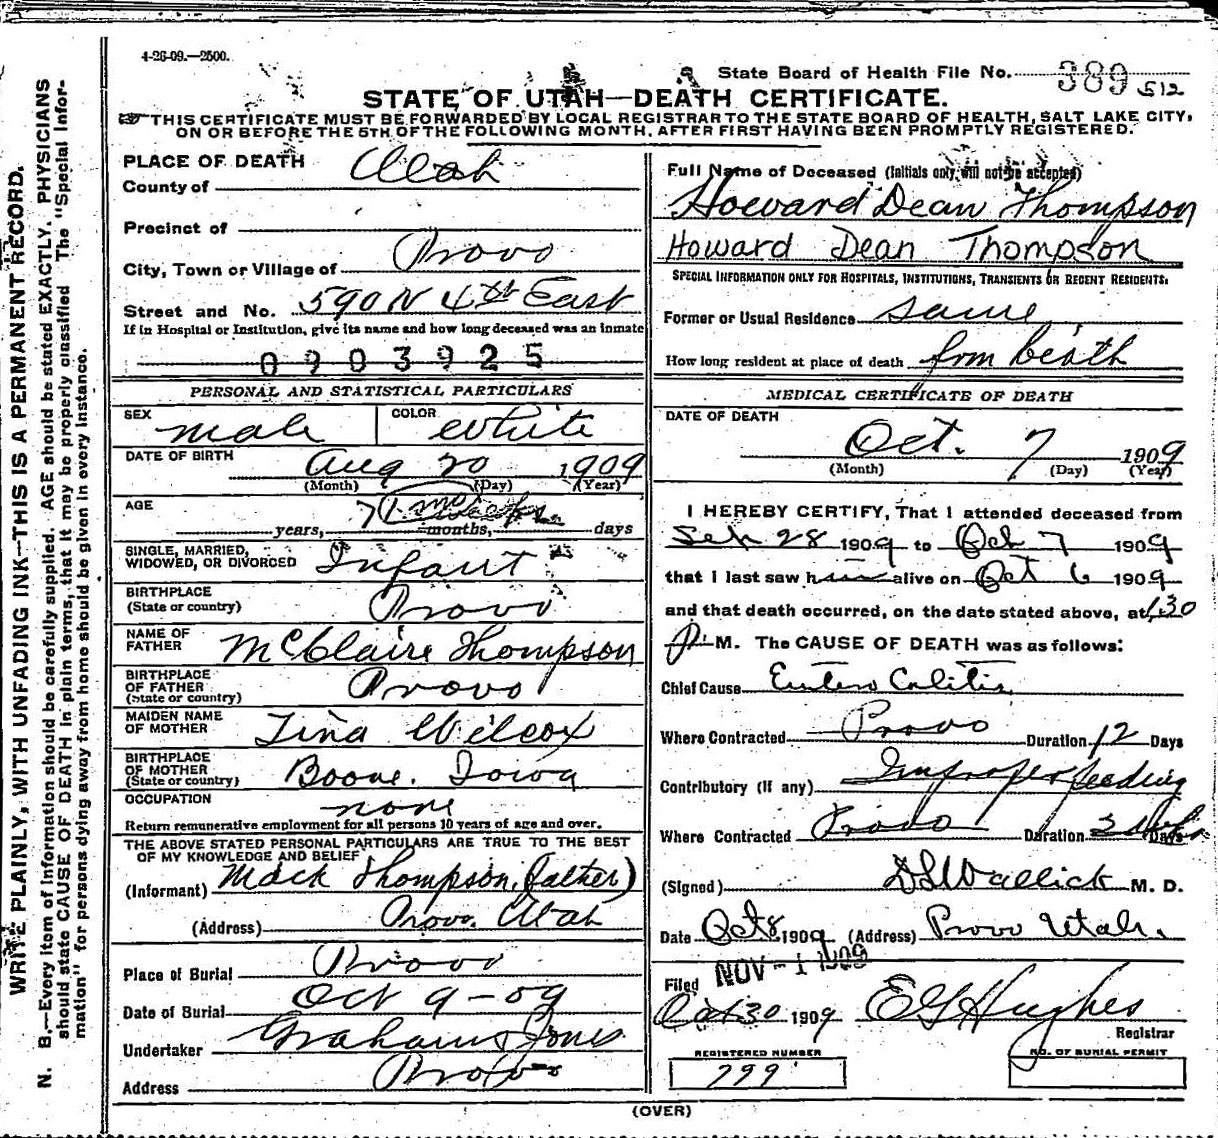 4-26-09.—2500.
State Board of Health File No. 389 512
STATE OF UTAH—DEATH CERTIFICATE.
THIS CERTIFICATE MUST BE FORWARDED BY LOCAL REGISTRAR TO THE STATE BOARD OF HEALTH, SALT LAKE CITY,
ON OR BEFORE THE 5TH OF THE FOLLOWING MONTH, AFTER FIRST HAVING BEEN PROMPTLY REGISTERED.
WRITE PLAINLY, WITH UNFADING INK—THIS IS A PERMANENT RECORD.
N. B.—Every item of information should be carefully supplied. AGE should be stated EXACTLY. PHYSICIANS
should state CAUSE OF DEATH in plain terms, that it may be properly classified The "Special Infor-
mation" for persons dying away from home should be given in every instance.
PLACE OF DEATH
County of Utah
Precinct of
City, Town or Village of Provo
Street and No. 590 N 4th East
If in Hospital or Institution, give its name and how long deceased was an inmate
0903925
PERSONAL AND STATISTICAL PARTICULARS
SEX male COLOR White
DATE OF BIRTH Aug 20 1909
(Month) (Day) (Year)
AGE
years, months, days
SINGLE, MARRIED,
WIDOWED, OR DIVORCED Infant
BIRTHPLACE
(State or country) Provo
NAME OF
FATHER McClaire Thompson
BIRTHPLACE
OF FATHER
(State or country) Provo
MAIDEN NAME
OF MOTHER Tina Wilcox
BIRTHPLACE
OF MOTHER
(State or country) Boone. Iowa
OCCUPATION none
Return remunerative employment for all persons 10 years of age and over.
THE ABOVE STATED PERSONAL PARTICULARS ARE TRUE TO THE BEST
OF MY KNOWLEDGE AND BELIEF
(Informant) Mack Thompson (father)
(Address) Provo. Utah
Place of Burial Provo
Date of Burial Oct 9-09
Undertaker Graham & Jones
Address Provo
Full Name of Deceased (Initials only will not be accepted)
Howard Dean Thompson
Howard Dean Thompson
SPECIAL INFORMATION ONLY FOR HOSPITALS, INSTITUTIONS, TRANSIENTS OR RECENT RESIDENTS.
Former or Usual Residence same
How long resident at place of death from beath
MEDICAL CERTIFICATE OF DEATH
DATE OF DEATH
Oct. 7 1909
(Month) (Day) (Year)
I HEREBY CERTIFY, That I attended deceased from
Sept 28 1909 to Oct 7 1909
that I last saw him alive on Oct 6 1909
and that death occurred, on the date stated above, at 1.30
P. M. The CAUSE OF DEATH was as follows:
Chief Cause Entero Colitis
Where Contracted Provo Duration 12 Days
Contributory (if any) Improper feeding
Where Contracted Provo Duration Days
(Signed) Wallick M. D.
Date Oct 8 1909 (Address) Provo Utah.
NOV -1 1909
Filed
Oct 30 1909 E G Hughes
Registrar
REGISTERED NUMBER
799
NO. OF BURIAL PERMIT
(OVER)